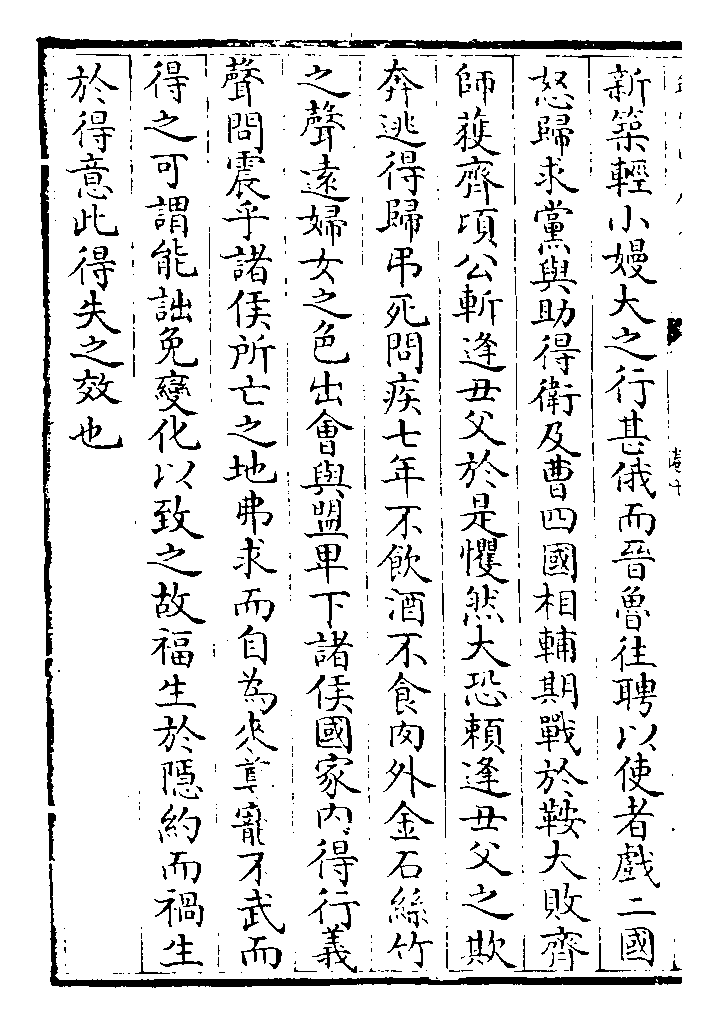 新築輕小嫚大之行甚俄而晉魯往聘以使者戲二國
怒歸求黨與助得衛及曹四國相輔期戰於鞍大敗齊
師獲齊頃公斬逢丑父於是懼然大恐賴逢丑父之欺
奔逃得歸弔死問疾七年不飲酒不食肉外金石絲竹
之聲遠婦女之色出會與盟卑下諸侯國家内得行義
聲問震乎諸侯所亡之地弗求而自為來尊寵不武而
得之可謂能詘免變化以致之故福生於隱約而禍生
於得意此得失之效也
卷十